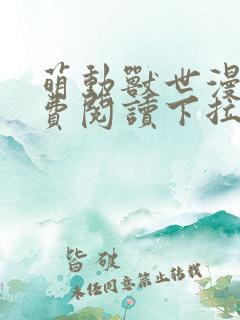 萌動獸世漫
費閱讀下拉
皆破
未任同意禁止转载